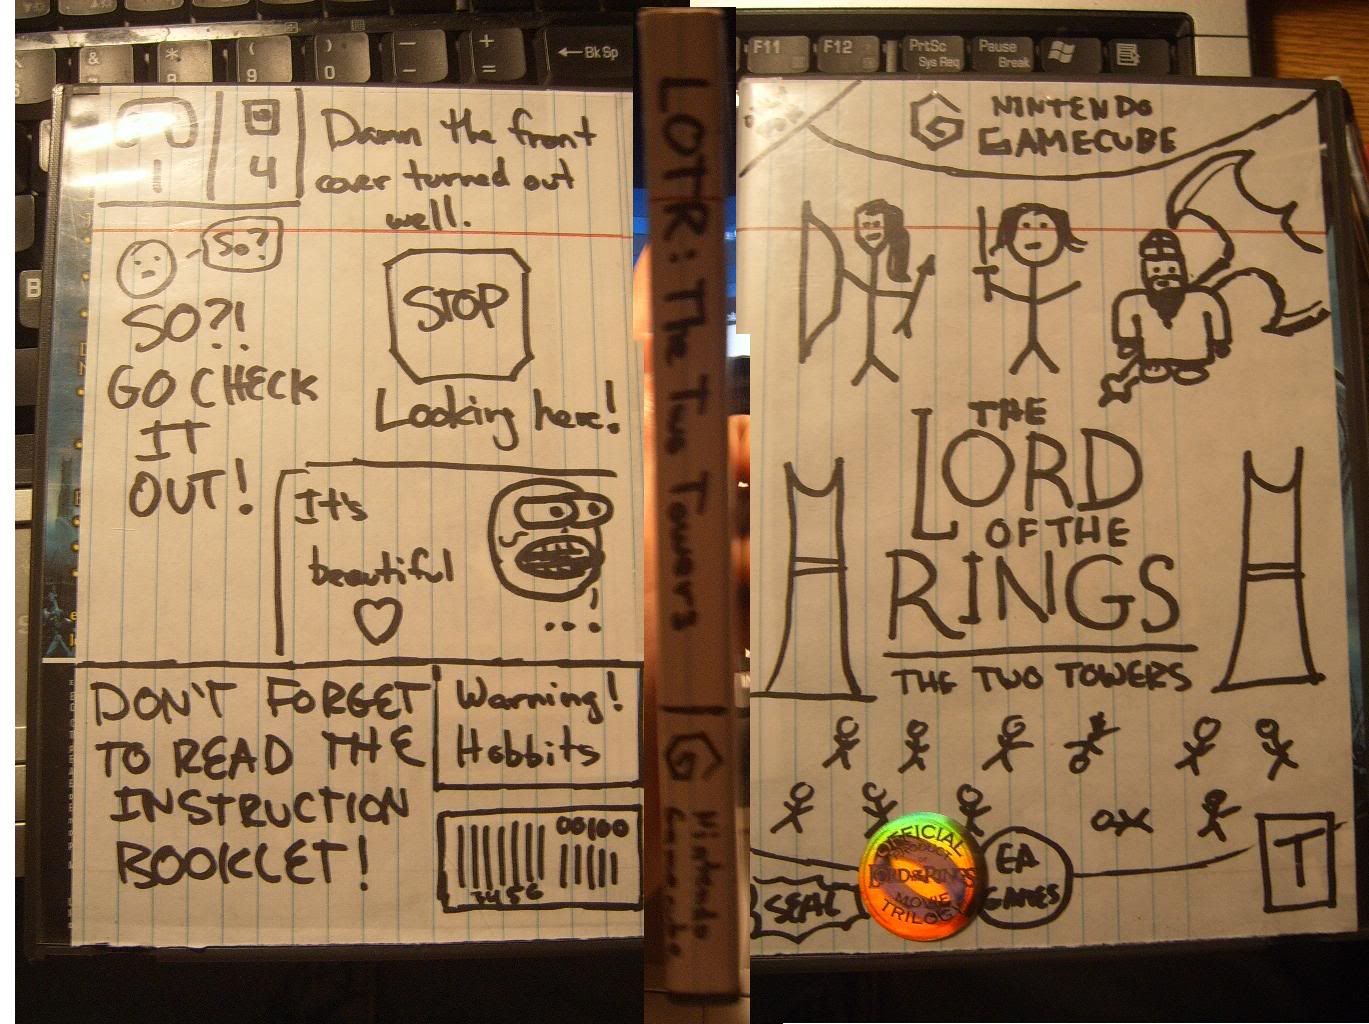 &
7
*
8
(
9
)
0
—
-
+
=
←BkSp
F11
F12
PrtSc
Sys Req
Pause
Break
B
1
4
Damn the front
cover turned out
well.
So?
SO?!
GO CHECK
IT
OUT!
STOP
Looking here!
It's
beautiful
...
DON'T FORGET
TO READ THE
INSTRUCTION
BOOKLET!
Warning!
Hobbits
00100
3456
LOTR: The Two Towers
G Nintendo
Gamecube
G NINTENDO
GAMECUBE
THE
LORD
OF THE
RINGS
THE TWO TOWERS
SEAL
OFFICIAL
PRODUCT
OF
LORD OF THE RINGS
MOVIE
TRILOGY
EA
GAMES
T